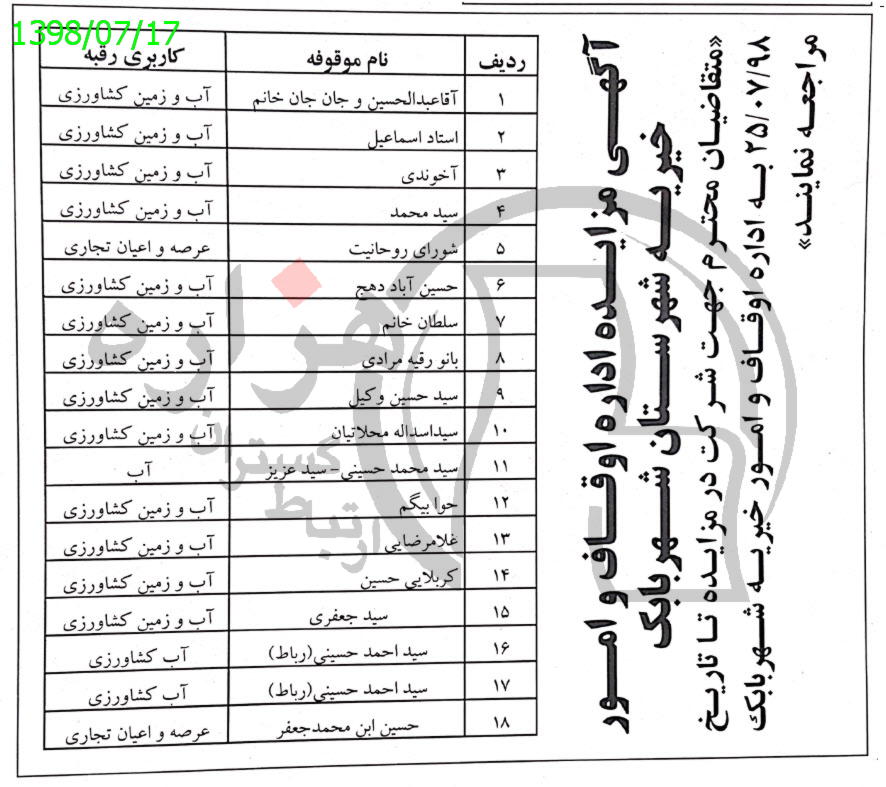 1398/07/17
آگهـی مزایـده اداره اوقـاف و امـور
خیریـه شهرسـتان شهربابک
«متقاضیـان محتـرم جهـت شـرکت در مزایـده تـا تاریـخ
۲۵/۰۷/۹۸ بـه اداره اوقـاف و امـور خیریـه شـهربابک
مراجعـه نماینـد»
ردیف نام موقوفه کاربری رقبه
۱ آقاعبدالحسین و جان جان خانم آب و زمین کشاورزی
۲ استاد اسماعیل آب و زمین کشاورزی
۳ آخوندی آب و زمین کشاورزی
۴ سید محمد آب و زمین کشاورزی
۵ شورای روحانیت عرصه و اعیان تجاری
۶ حسین آباد دهج آب و زمین کشاورزی
۷ سلطان خانم آب و زمین کشاورزی
۸ بانو رقیه مرادی آب و زمین کشاورزی
۹ سید حسین وکیل آب و زمین کشاورزی
۱۰ سیداسداله محلاتیان آب و زمین کشاورزی
۱۱ سید محمد حسینی - سید عزیز آب
۱۲ حوا بیگم آب و زمین کشاورزی
۱۳ غلامرضایی آب و زمین کشاورزی
۱۴ کربلایی حسین آب و زمین کشاورزی
۱۵ سید جعفری آب و زمین کشاورزی
۱۶ سید احمد حسینی(رباط) آب کشاورزی
۱۷ سید احمد حسینی(رباط) آب کشاورزی
۱۸ حسین ابن محمدجعفر عرصه و اعیان تجاری
هزاره
گستران
ارتباط